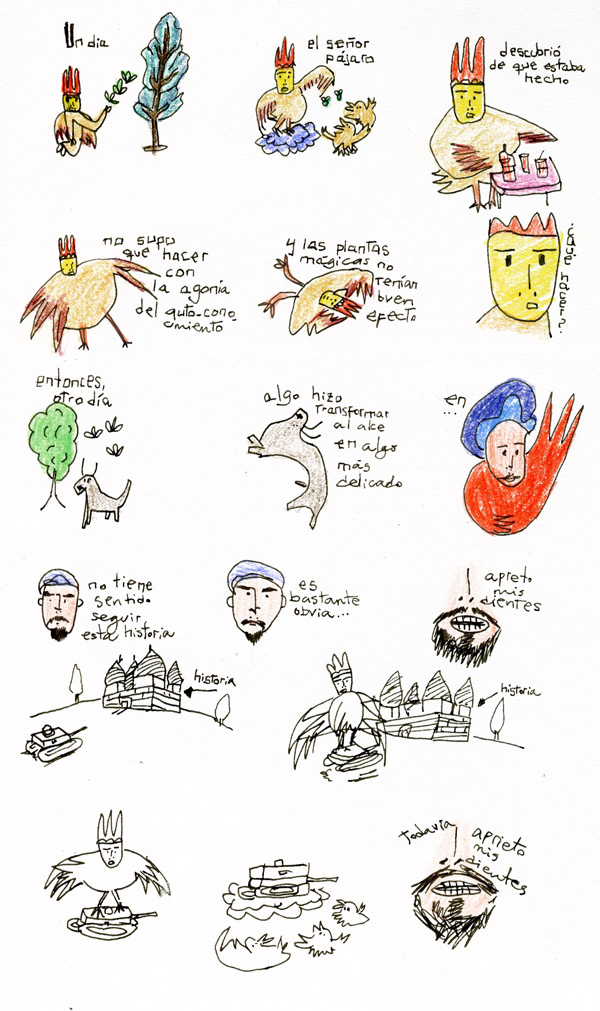 Un dia
el señor
pájaro
descubrió
de que estaba
hecho
no supo
que hacer
con
la agonía
del auto-cono-
cimiento
y las plantas
mágicas no
tenían
buen
efecto
¿Qué hacer?
entonces,
otro día
algo hizo
transformar
al ake
en algo
más
delicado
en
...
no tiene
sentido
seguir
esta historia
es
bastante
obvia...
apreto
mis
dientes
historia
historia
todavía
aprieto
mis
dientes